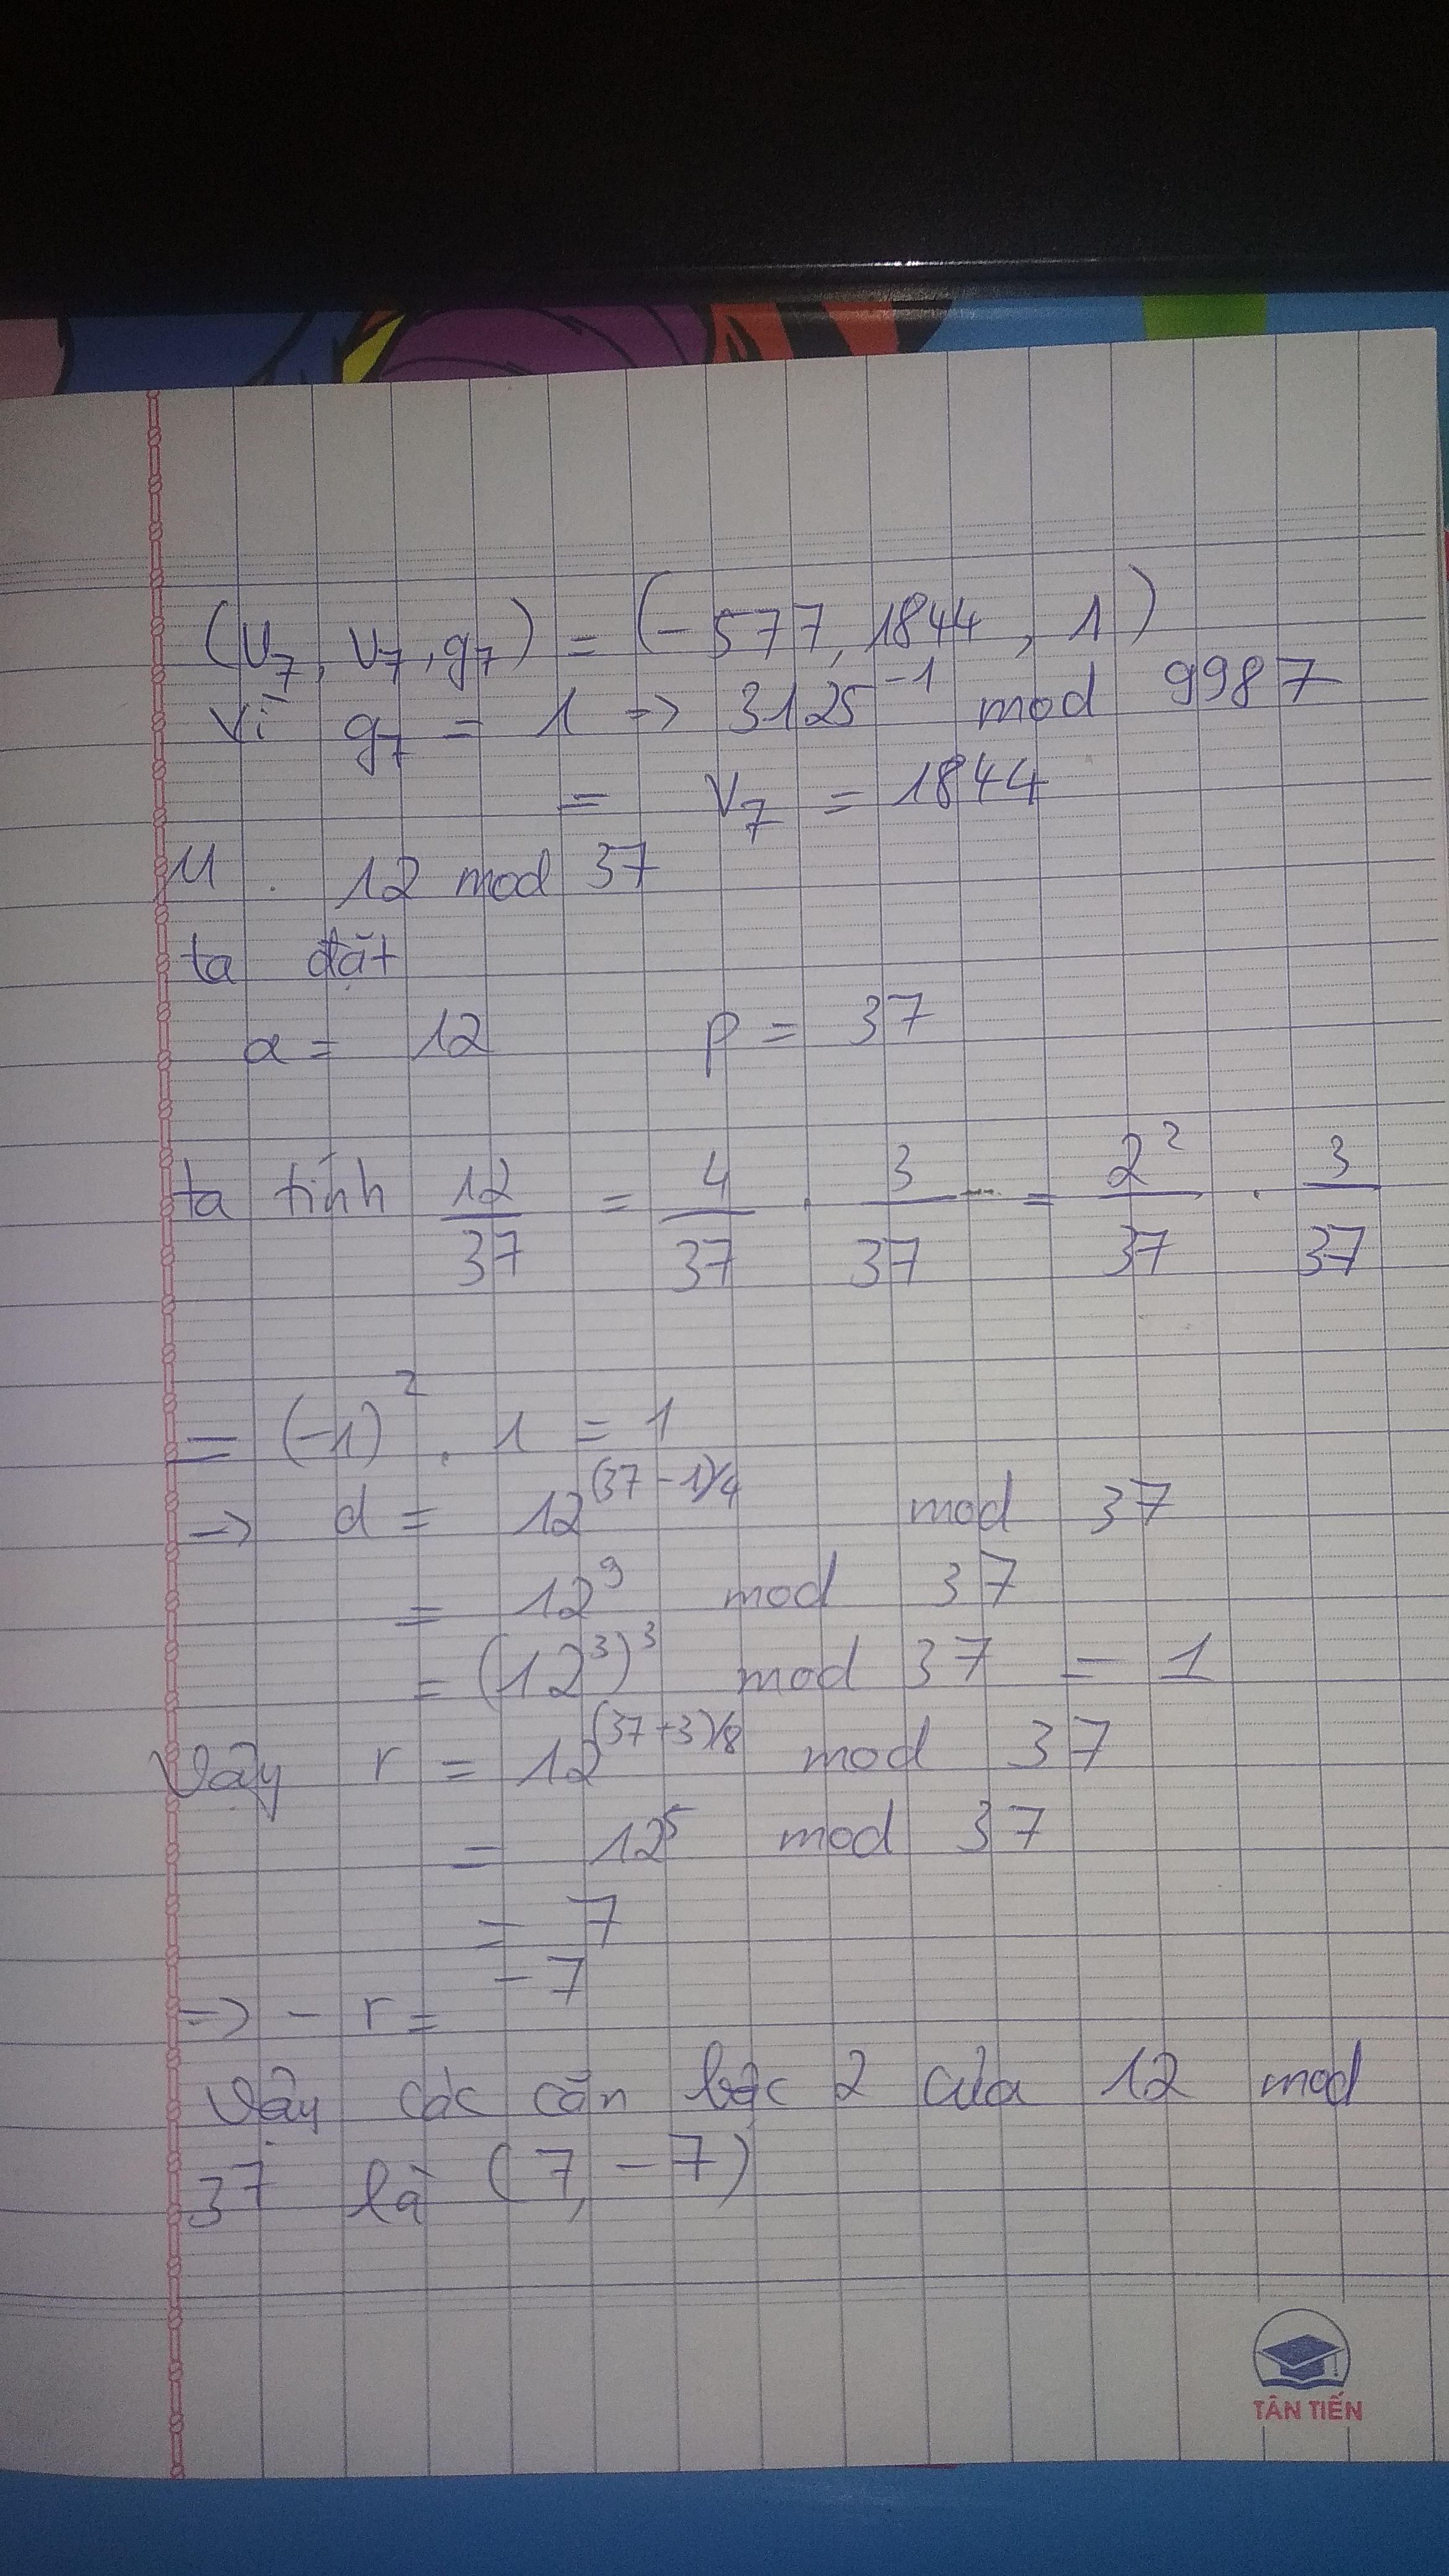 (U₇, V₇, g₇) = (-577, 1844, 1)
Vì g₇ = 1 => 3125⁻¹ mod 9987
= V₇ = 1844
11. 12 mod 37
ta đặt
a = 12 p = 37
ta tính 12/37 = 4/37 . 3/37 = 2²/37 . 3/37
= (-1)² . 1 = 1
=> d = 12^(37-1)/4 mod 37
= 12⁹ mod 37
= (12³)³ mod 37 = 1
Vậy r = 12^(37+3)/8 mod 37
= 12⁵ mod 37
= 7
=> - r = - 7
Vậy các căn bậc 2 của 12 mod
37 là (7, -7)
TÂN TIẾN